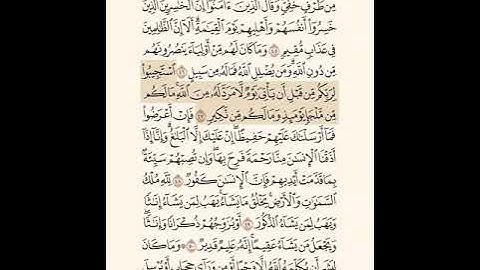 مِن طَرْفٍ خَفِيٍّ وَقَالَ ٱلَّذِينَ ءَامَنُوٓا۟ إِنَّ ٱلْخَٰسِرِينَ ٱلَّذِينَ
خَسِرُوٓا۟ أَنفُسَهُمْ وَأَهْلِيهِمْ يَوْمَ ٱلْقِيَٰمَةِ أَلَآ إِنَّ ٱلظَّٰلِمِينَ
فِى عَذَابٍ مُّقِيمٍ ٤٥ وَمَا كَانَ لَهُم مِّنْ أَوْلِيَآءَ يَنصُرُونَهُم
مِّن دُونِ ٱللَّهِ وَمَن يُضْلِلِ ٱللَّهُ فَمَا لَهُۥ مِن سَبِيلٍ ٤٦ ٱسْتَجِيبُوا۟
لِرَبِّكُم مِّن قَبْلِ أَن يَأْتِىَ يَوْمٌ لَّا مَرَدَّ لَهُۥ مِنَ ٱللَّهِ مَا لَكُم
مِّن مَّلْجَإٍ يَوْمَئِذٍ وَمَا لَكُم مِّن نَّكِيرٍ ٤٧ فَإِنْ أَعْرَضُوا۟
فَمَآ أَرْسَلْنَٰكَ عَلَيْهِمْ حَفِيظًا إِنْ عَلَيْكَ إِلَّا ٱلْبَلَٰغُ وَإِنَّآ إِذَآ
أَذَقْنَا ٱلْإِنسَٰنَ مِنَّا رَحْمَةً فَرِحَ بِهَا وَإِن تُصِبْهُمْ سَيِّئَةٌۢ
بِمَا قَدَّمَتْ أَيْدِيهِمْ فَإِنَّ ٱلْإِنسَٰنَ كَفُورٌ ٤٨ لِّلَّهِ مُلْكُ
ٱلسَّمَٰوَٰتِ وَٱلْأَرْضِ يَخْلُقُ مَا يَشَآءُ يَهَبُ لِمَن يَشَآءُ إِنَٰثًا
وَيَهَبُ لِمَن يَشَآءُ ٱلذُّكُورَ ٤٩ أَوْ يُزَوِّجُهُمْ ذُكْرَانًا وَإِنَٰثًا
وَيَجْعَلُ مَن يَشَآءُ عَقِيمًا إِنَّهُۥ عَلِيمٌ قَدِيرٌ ٥٠ وَمَا كَانَ
لِبَشَرٍ أَن يُكَلِّمَهُ ٱللَّهُ إِلَّا وَحْيًا أَوْ مِن وَرَآئِ حِجَابٍ أَوْ يُرْسِلَ